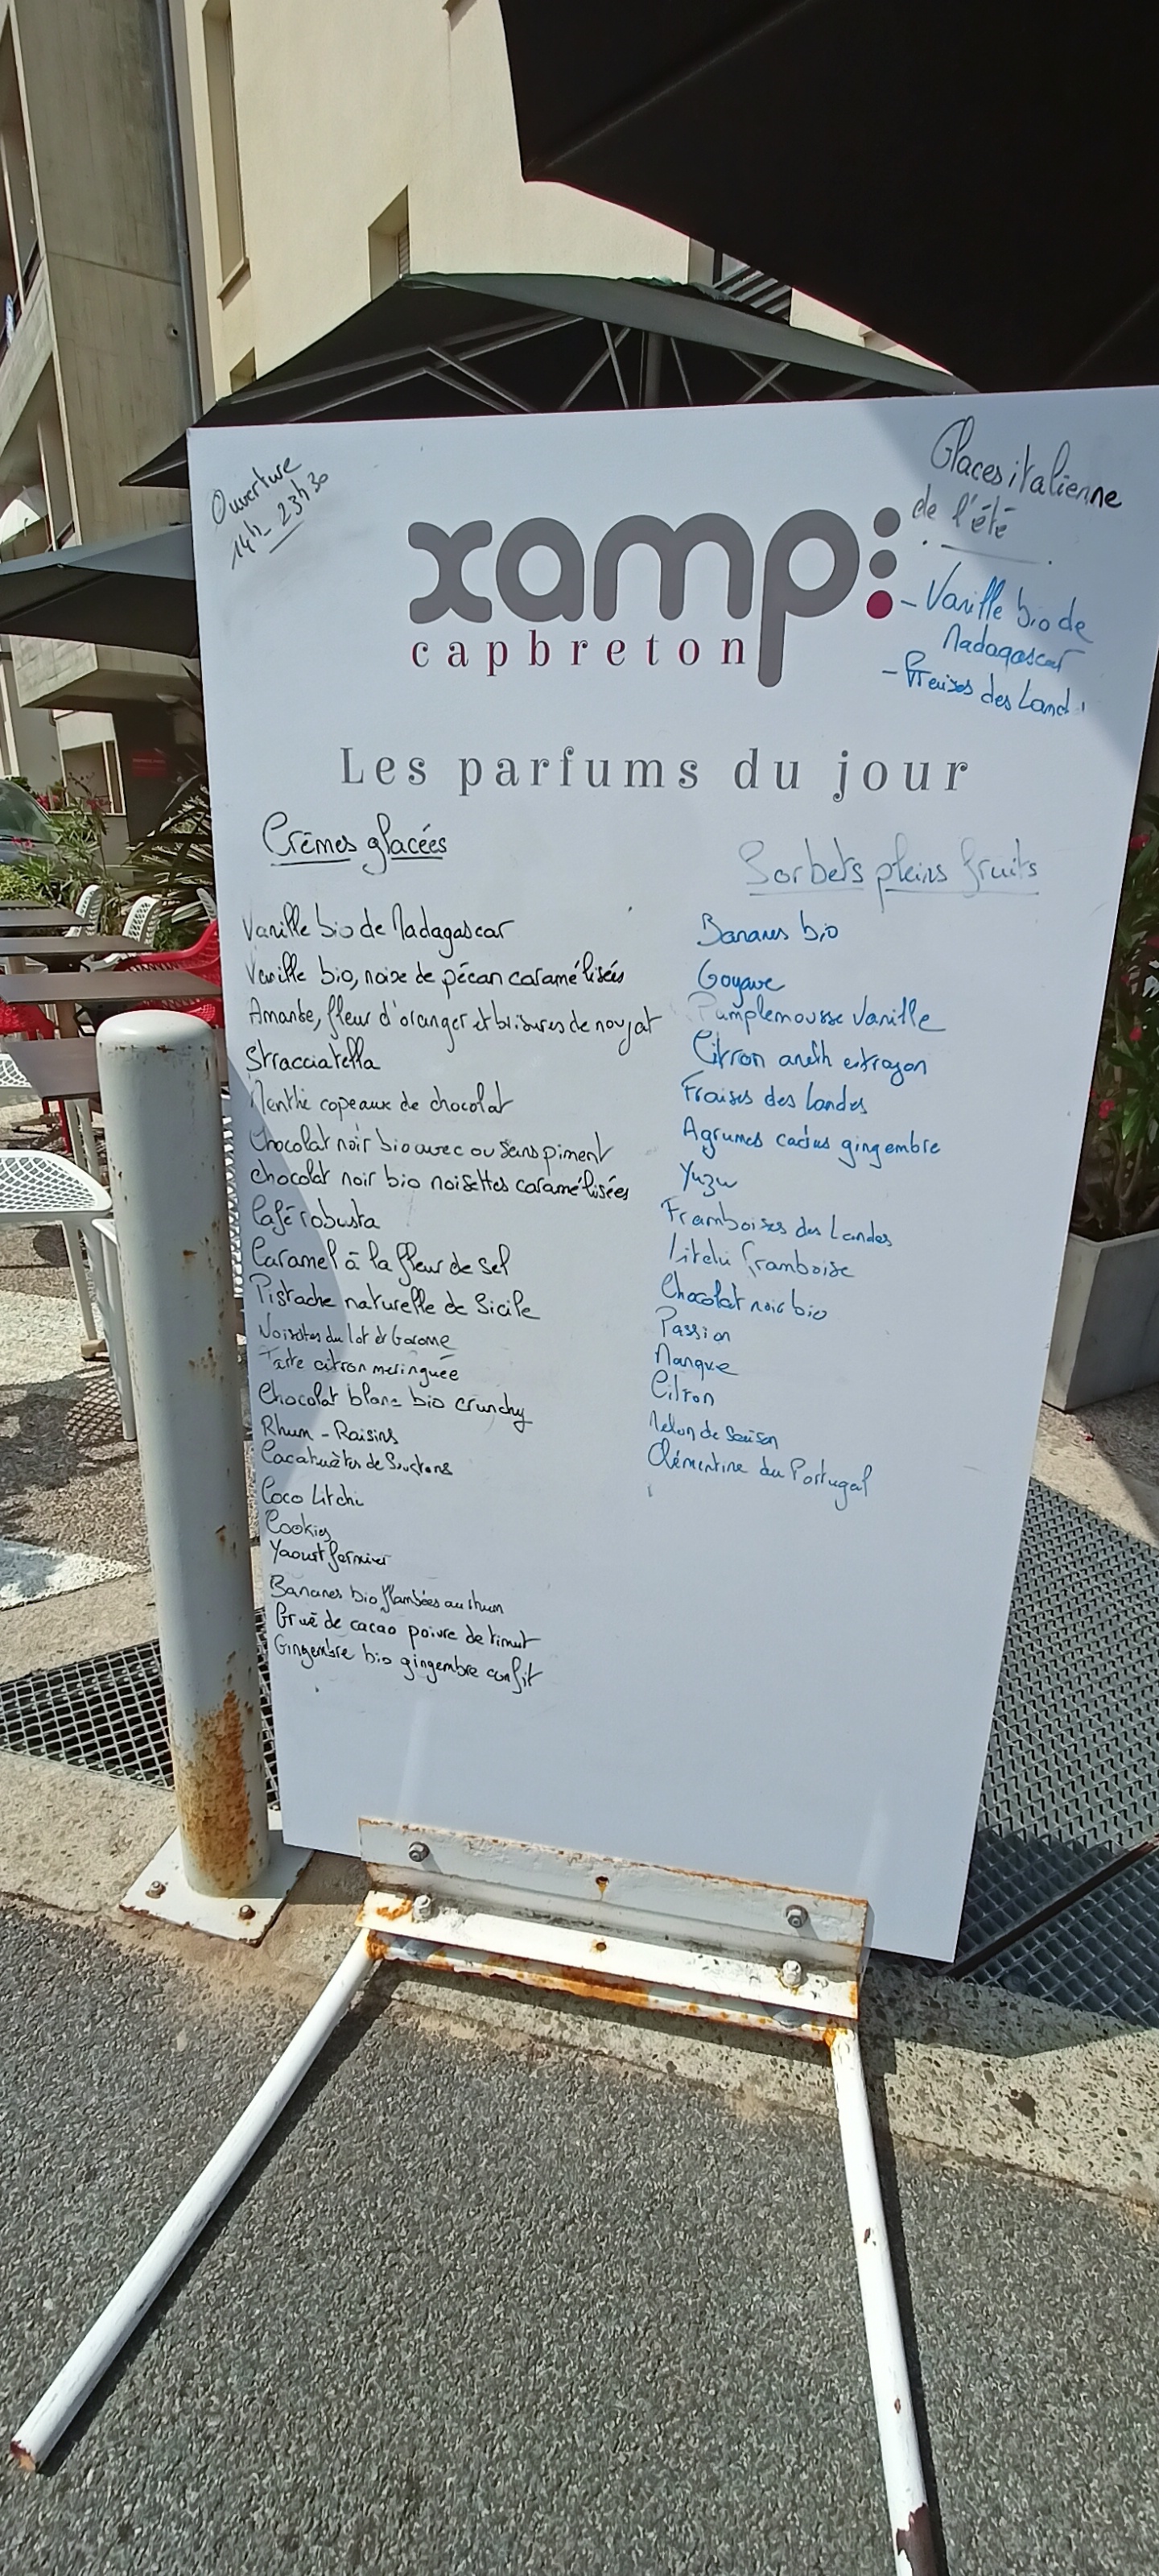 Ouverture
14h_ 23h30
Glaces italienne
de l'été
xamp
capbreton
- Vanille bio de
Madagascar
- Fraises des Land
Les parfums du jour
Crèmes glacées
Vanille bio de Madagascar
Vanille bio, noix de pécan caramélisées
Amande, fleur d'oranger et brisures de nougat
Stracciatella
Menthe copeaux de chocolat
Chocolat noir bio avec ou sans piment
chocolat noir bio noisettes caramélisées
Café robusta
Caramel à la fleur de sel
Pistache naturelle de Sicile
Noisettes du lot et Garonne
Tarte citron meringuée
Chocolat blanc bio crunchy
Rhum - Raisins
Cacahuètes de Soustons
Coco Litchi
Cookies
Yaourt fermier
Bananes bio flambées au rhum
Grué de cacao poivre de timut
Gingembre bio gingembre confit
Sorbets pleins fruits
Bananes bio
Goyave
Pamplemousse Vanille
Citron aneth estragon
Fraises des Landes
Agrumes cactus gingembre
Yuzu
Framboises des Landes
Litchi framboise
Chocolat noir bio
Passion
Mangue
Citron
Melon de Saison
Clémentine du Portugal